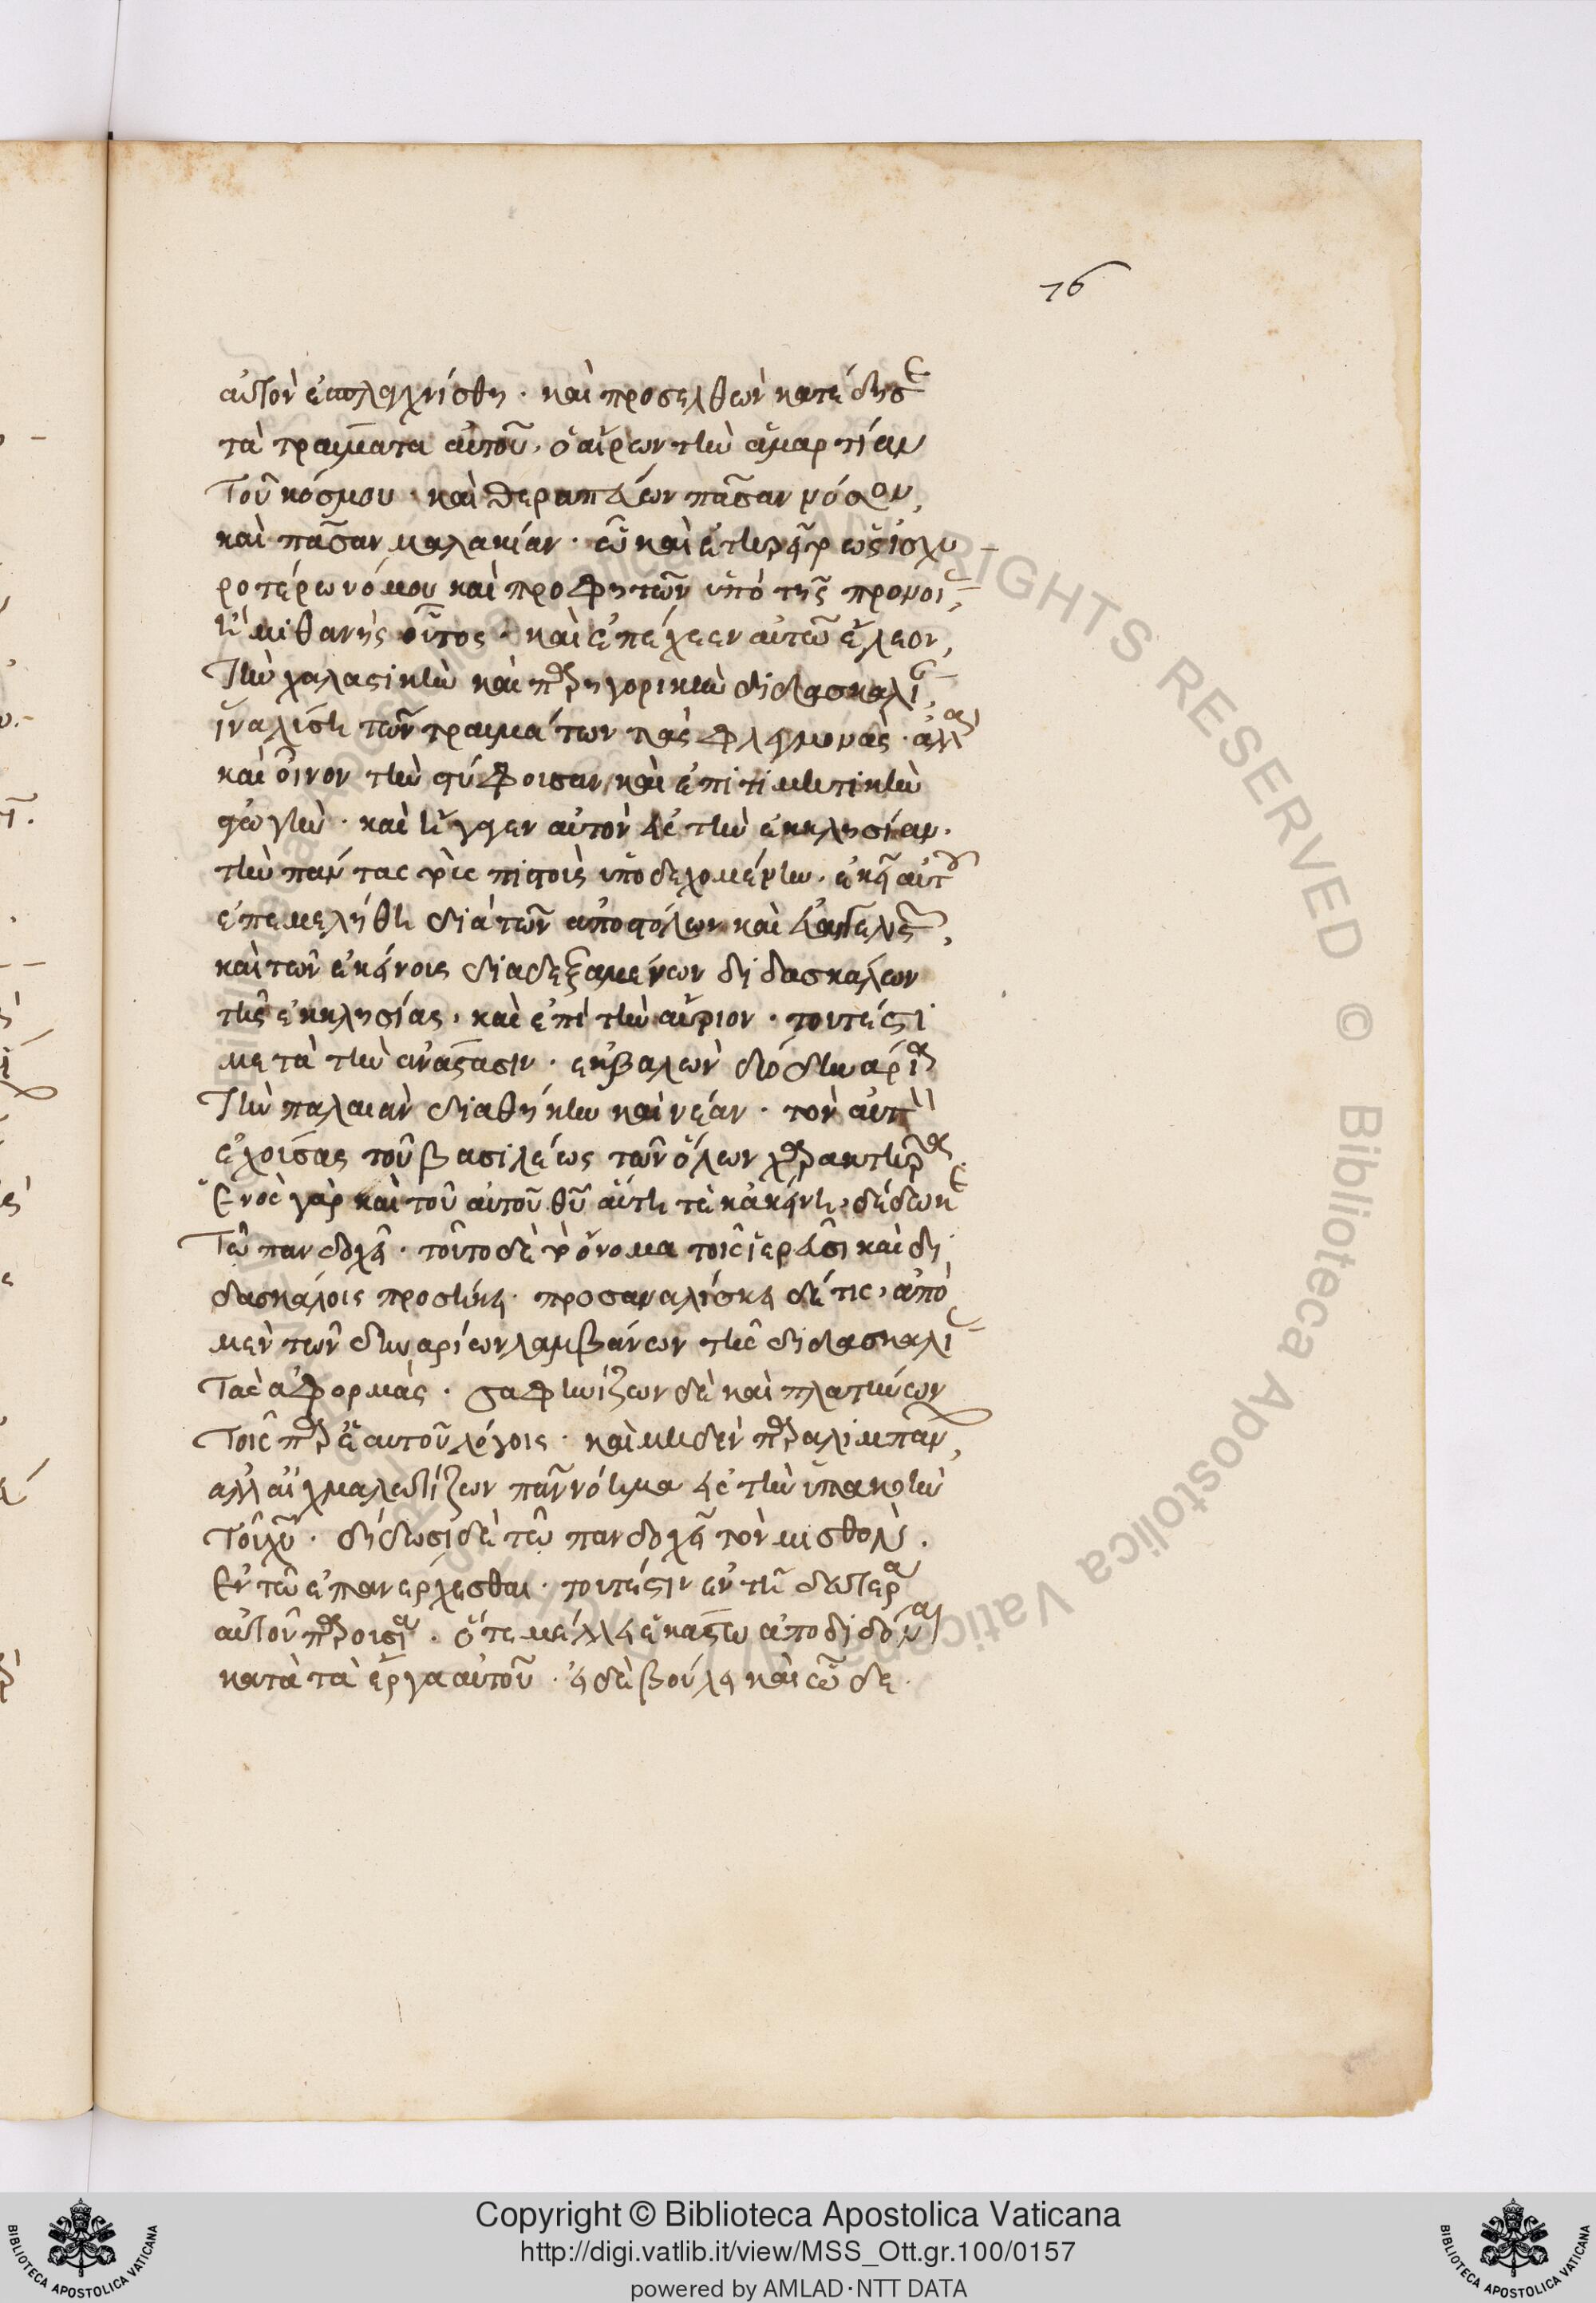 76
αὐτὸν ἐσπλαγχνίσθη · καὶ προσελθὼν κατέδησε
τὰ τραύματα αὐτοῦ, ὁ αἴρων τὴν ἁμαρτίαν
τοῦ κόσμου · καὶ θεραπεύων πᾶσαν νόσον,
καὶ πᾶσαν μαλακίαν ·
ροτέρω νόμου καὶ προφητῶν ὑπὸ τῆς
ἡμιθανὴς οὗτος · καὶ ἐπέχεεν αὐτῶ ἔλεον,
τὴν χαλαστικὴν καὶ παρηγορικὴν διδασκαλίαν
τῶν τραυμάτων τὰς φλεγμονάς · ἀλλὰ
καὶ οἶνον τὴν στύφουσαν καὶ ἐπιτιμητικὴν
καὶ ἤγαγεν αὐτὸν εἰς τὴν ἐκκλησίαν ·
τὴν πάντας τοὺς πιστοὺς ὑποδεχομένην · ἐκεῖ αὐτοῦ
ἐπεμελήθη διὰ τῶν ἀποστόλων καὶ εὐαγγελιστῶν,
καὶ τῶν ἐκείνους διαδεξαμένων διδασκάλων
τῆς ἐκκλησίας · καὶ ἐπὶ τὴν αὔριον · τουτέστι
μετὰ τὴν ἀνάστασιν · ἐκβαλὼν δύο δηνάρια
τὴν παλαιὰν διαθήκην καὶ νέαν · τὸν αὐτὸν
ἐχούσας τοῦ βασιλέως τῶν ὅλων χαρακτῆρα
ἑνὸς γὰρ καὶ τοῦ αὐτοῦ θῦ αὕτη τὲ κἀκείνη, δέδωκε
τῶ πανδοχεῖ · τοῦτο δὲ τὸ ὄνομα τοῖς ἱερεῦσι καὶ δι
δασκάλοις προσήκει · προσαναλίσκει δέ τις, ἀπὸ
μὲν τῶν δηναρίων λαμβάνων τῆς διδασκαλίας
τὰς ἀφορμάς · σαφηνίζων δὲ καὶ πλατύνων
τοῖς παρ' ἑαυτοῦ λόγοις · καὶ μηδὲν παραλιμπάνων,
ἀλλ' αἰχμαλωτίζων πᾶν νόημα εἰς τὴν ὑπακοὴν
τοῦ χυ · δίδωσι δὲ τῶ πανδοχεῖ τὸν μισθὸν ·
ἐν τῶ ἐπανέρχεσθαι · τουτέστιν ἐν τῇ δευτέρα
αὐτοῦ παρουσία · ὅτε μέλλει ἑκάστω ἀποδιδόναι
κατὰ τὰ ἔργα αὐτοῦ · εἰ δὲ βούλει καὶ ὧδε ·
Copyright © Biblioteca Apostolica Vaticana
http://digi.vatlib.it/view/MSS_Ott.gr.100/0157
powered by AMLAD·NTT DATA